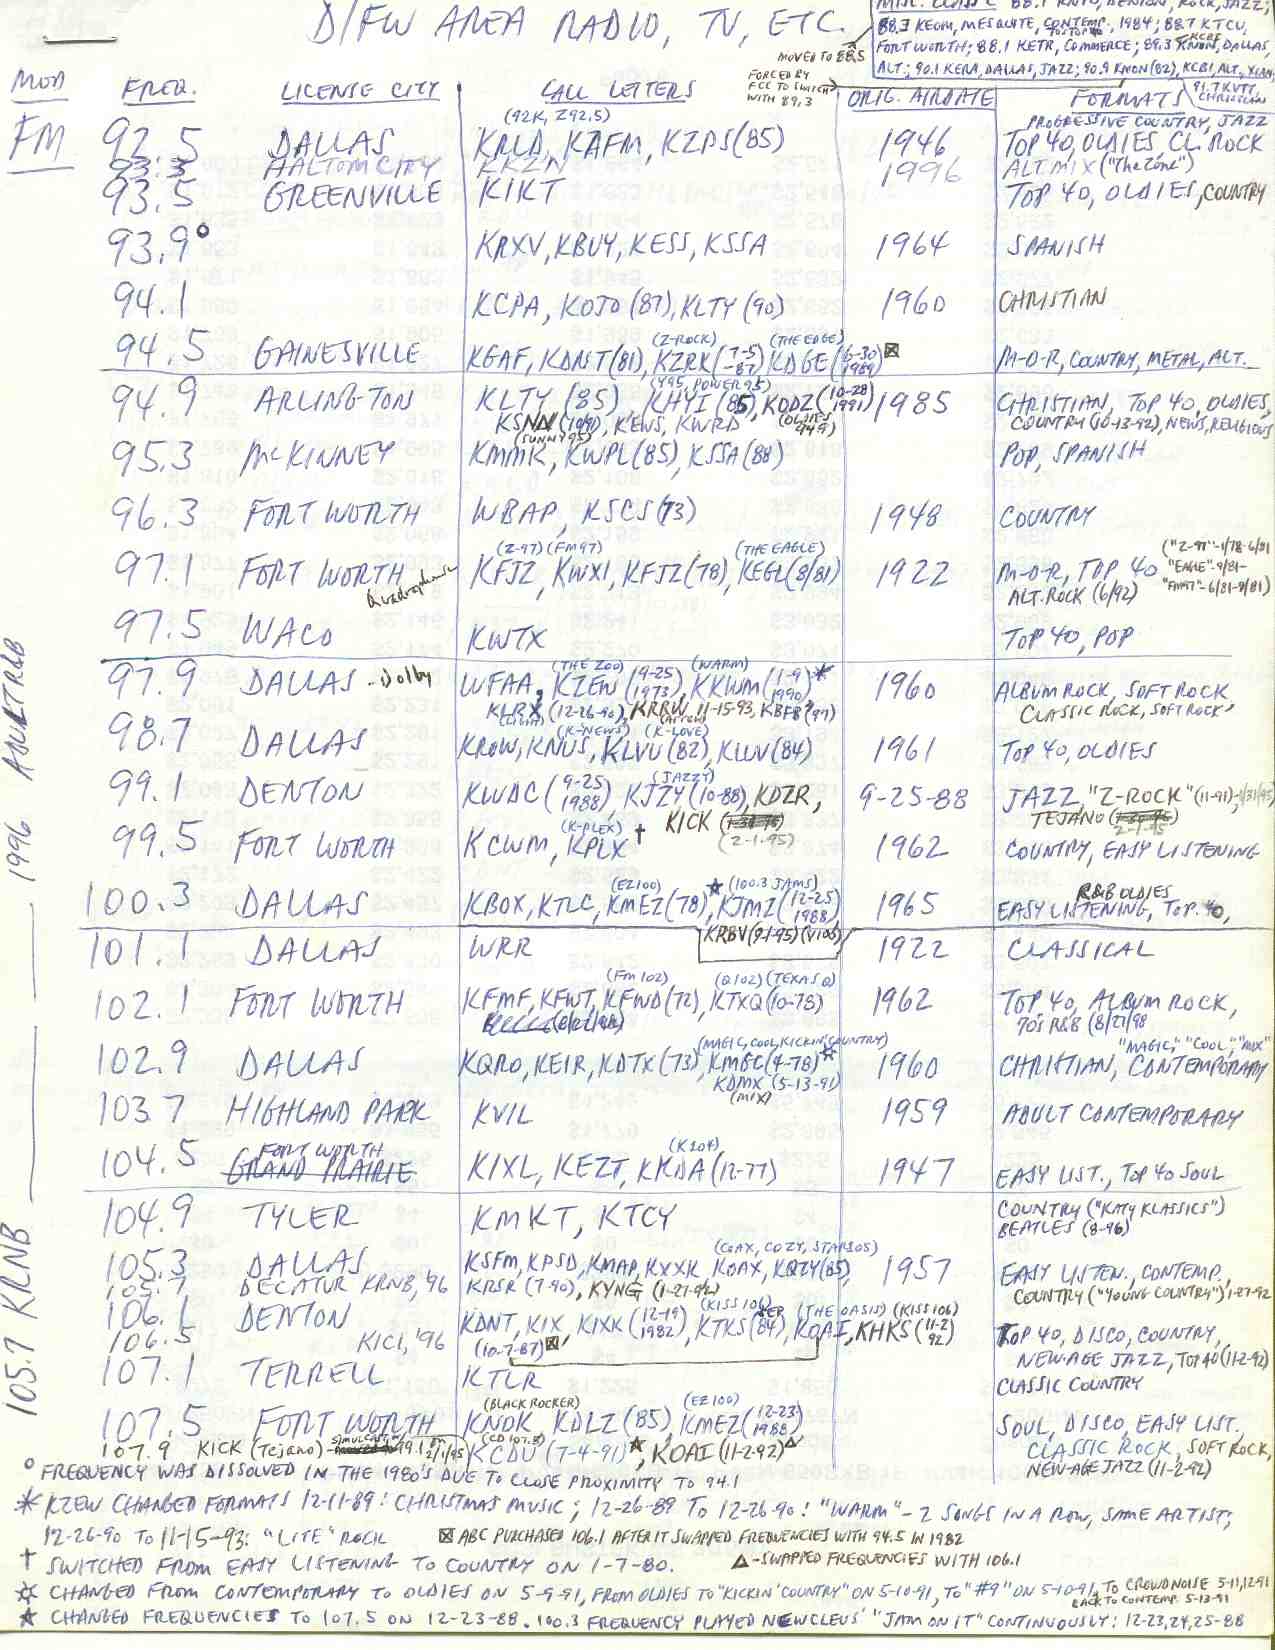 D/FW AREA RADIO, TV, ETC.
MISC. CLASS C 88.1 KNTU, DENTON, ROCK, JAZZ;
88.3 KEOM, MESQUITE, CONTEMP., 1984; 88.7 KTCU,
FORT WORTH; 88.1 KETR, COMMERCE; 89.3 KNON, DALLAS,
ALT.; 90.1 KERA, DALLAS, JAZZ; 90.9 KNON(82), KCBI, ALT.,
91.7 KVTT, CHRISTIAN
MOVED TO 88.5
FORCED BY
FCC TO SWITCH
WITH 89.3
MOD FREQ. LICENSE CITY CALL LETTERS ORIG. AIRDATE FORMATS
(92K, Z92.5) PROGRESSIVE COUNTRY, JAZZ
FM 92.5 DALLAS KRLD, KAFM, KZPS(85) 1946 TOP 40, OLDIES CL. ROCK
93.3 HALTOM CITY KKZN 1996 ALT. MIX ("The Zone")
93.5 GREENVILLE KIKT TOP 40, OLDIES, COUNTRY
93.9° KRXV, KBUY, KESS, KSSA 1964 SPANISH
94.1 KCPA, KOJO (87), KLTY (90) 1960 CHRISTIAN
(Z-ROCK) (THE EDGE)
94.5 GAINESVILLE KGAF, KDNT(81), KZRK(7-5-87) KDGE(6-30 1989)⊠ M-O-R, COUNTRY, METAL, ALT.
(Y95, POWER 95)
94.9 ARLINGTON KLTY (85) KHYI (85), KODZ (10-28 1991) 1985 CHRISTIAN, TOP 40, OLDIES,
KSNN, KEWS, KWRD (OLDIES 94.9) COUNTRY (10-13-92), NEWS, RELIGIOUS
(SUNNY 95)
95.3 McKINNEY KMMK, KWPL(85), KSSA(88) POP, SPANISH
96.3 FORT WORTH WBAP, KSCS(73) 1948 COUNTRY
(Z-97) (FM97) (THE EAGLE) ("Z-97"-1/78-6/81
97.1 FORT WORTH KFJZ, KWXI, KFJZ(78), KEGL(8/81) 1922 M-O-R, TOP 40 "EAGLE"-9/81-
Quadraphonic ALT. ROCK (6/92) "FM97"-6/81-9/81)
97.5 WACO KWTX TOP 40, POP
(THE ZOO) (WARM)
97.9 DALLAS - Dolby WFAA, KZEW(9-25 1973), KKWM(1-9 1990)* 1960 ALBUM ROCK, SOFT ROCK
KLRX (12-26-90), KRRW 11-15-93, KBFB (97) CLASSIC ROCK, SOFT ROCK
(ARROW)
(K-NEWS) (K-LOVE)
98.7 DALLAS KROW, KNUS, KLVU (82), KLUV (84) 1961 TOP 40, OLDIES
(JAZZY)
99.1 DENTON KWDC (9-25 1988) KJZY (10-88), KDZR, 9-25-88 JAZZ, "Z-ROCK" (11-91)-1/31/95)
KICK (2-1-95) TEJANO (2-1-95)
(K-PLEX)
99.5 FORT WORTH KCWM, KPLX† 1962 COUNTRY, EASY LISTENING
(EZ100) (100.3 JAMS) R&B OLDIES
100.3 DALLAS KBOX, KTLC, KMEZ(78)★, KJMZ(12-25 1988) 1965 EASY LISTENING, TOP 40,
KRBV (9-1-95) (V100)
101.1 DALLAS WRR 1922 CLASSICAL
(FM 102) (Q102) (TEXAS Q)
102.1 FORT WORTH KFMF, KFWT, KFWD(72), KTXQ(10-78) 1962 TOP 40, ALBUM ROCK,
(8/27/98) 70's R&B (8/27/98
(MAGIC, COOL, KICKIN' COUNTRY) "MAGIC," "COOL," "MIX"
102.9 DALLAS KQRO, KEIR, KDTX(73), KMGC(4-78)☼ 1960 CHRISTIAN, CONTEMPORARY
KDMX (5-13-91)
(MIX)
103.7 HIGHLAND PARK KVIL 1959 ADULT CONTEMPORARY
(K104)
104.5 FORT WORTH GRAND PRAIRIE KIXL, KEZT, KKDA(12-77) 1947 EASY LIST., TOP 40 SOUL
104.9 TYLER KMKT, KTCY COUNTRY ("KMTY KLASSICS")
BEATLES (8-96)
(COAX, COZY, STAR105)
105.3 DALLAS KSFM, KPSD, KMAP, KXXK, KOAX, KQZY(85), 1957 EASY LISTEN., CONTEMP.,
105.7 DECATUR KRNB, '96 KRSR (7-90), KYNG (1-27-92) COUNTRY ("YOUNG COUNTRY") 1-27-92
(KISS 106) (THE OASIS) (KISS 106)
106.1 DENTON KDNT, KIX, KIXK (12-19 1982), KTKS(84), KOAI, KHKS(11-2 92) TOP 40, DISCO, COUNTRY,
106.5 KICI, '96 (10-7-87)⊠ NEW-AGE JAZZ, TOP 40 (11-2-92)
107.1 TERRELL KTLR CLASSIC COUNTRY
(BLACK ROCKER) (EZ100)
107.5 FORT WORTH KNOK, KDLZ(85), KMEZ(12-23 1988) SOUL, DISCO, EASY LIST.
(CD 107.5) CLASSIC ROCK, SOFT ROCK,
107.9 KICK (Tejano) - SIMULCAST 99.1 2/1/95 KCDU (7-4-91)★, KOAI (11-2-92)△ NEW-AGE JAZZ (11-2-92)
105.7 KRNB 1996 ADULT R&B
° FREQUENCY WAS DISSOLVED IN THE 1980's DUE TO CLOSE PROXIMITY TO 94.1
* KZEW CHANGED FORMATS 12-11-89: CHRISTMAS MUSIC; 12-26-89 TO 12-26-90: "WARM" - 2 SONGS IN A ROW, SAME ARTIST;
12-26-90 TO 11-15-93: "LITE" ROCK ⊠ ABC PURCHASED 106.1 AFTER IT SWAPPED FREQUENCIES WITH 94.5 IN 1982
† SWITCHED FROM EASY LISTENING TO COUNTRY ON 1-7-80. △-SWAPPED FREQUENCIES WITH 106.1
☼ CHANGED FROM CONTEMPORARY TO OLDIES ON 5-9-91, FROM OLDIES TO "KICKIN' COUNTRY" ON 5-10-91, TO "#9" ON 5-10-91, TO CROWD NOISE 5-11,12-91
BACK TO CONTEMP. 5-13-91
★ CHANGED FREQUENCIES TO 107.5 ON 12-23-88. 100.3 FREQUENCY PLAYED NEWCLEUS' "JAM ON IT" CONTINUOUSLY: 12-23,24,25-88